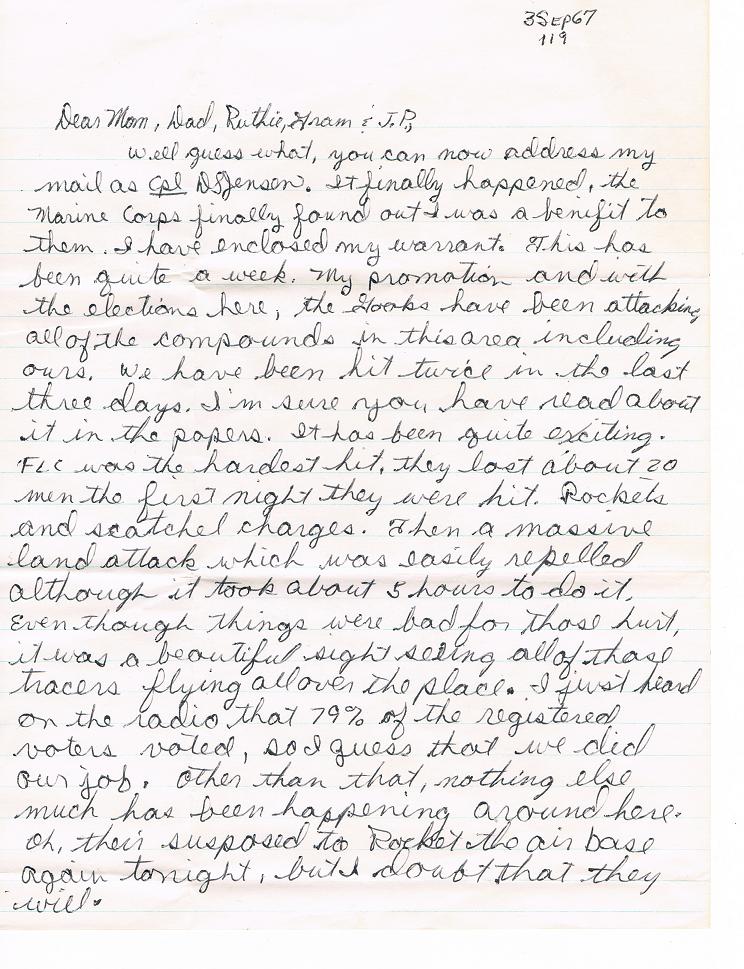 3SEP67
119
Dear Mom, Dad, Ruthie, Gram & J.P.,
Well guess what, you can now address my
mail as Cpl DSJensen. It finally happened, the
Marine Corps finally found out I was a benifit to
them. I have enclosed my warrant. This has
been quite a week. My promotion and with
the elections here, the Gooks have been attacking
all of the compounds in this area including
ours. We have been hit twice in the last
three days. I'm sure you have read about
it in the papers. It has been quite exciting.
FLC was the hardest hit, they lost about 20
men the first night they were hit. Rockets
and scatchel charges. Then a massive
land attack which was easily repelled
although it took about 5 hours to do it.
Even though things were bad for those hurt,
it was a beautiful sight seeing all of those
tracers flying all over the place. I just heard
on the radio that 79% of the registered
voters voted, so I guess that we did
our job. Other than that, nothing else
much has been happening around here.
Oh, their susposed to Rocket the air base
again tonight, but I doubt that they
will.